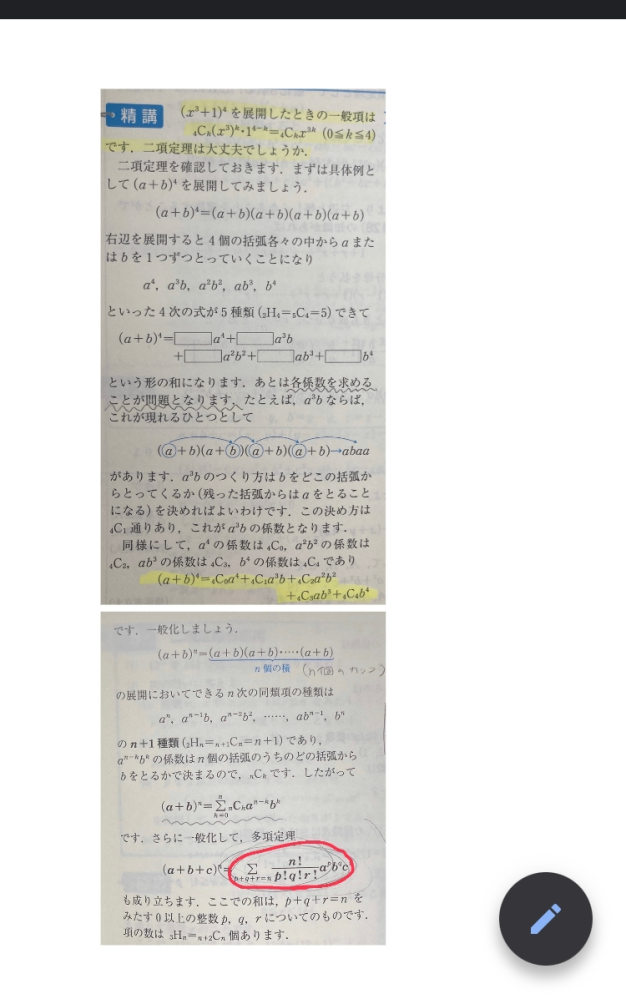 精講 (x³+1)⁴ を展開したときの一般項は
₄Cₖ(x³)ᵏ・1⁴⁻ᵏ=₄Cₖx³ᵏ (0≦k≦4)
です．二項定理は大丈夫でしょうか．
二項定理を確認しておきます．まずは具体例と
して (a+b)⁴ を展開してみましょう．
(a+b)⁴=(a+b)(a+b)(a+b)(a+b)
右辺を展開すると 4 個の括弧各々の中から a また
は b を 1 つずつとっていくことになり
a⁴, a³b, a²b², ab³, b⁴
といった 4 次の式が 5 種類 (₂H₄=₅C₄=5) できて
(a+b)⁴=□a⁴+□a³b
+□a²b²+□ab³+□b⁴
という形の和になります．あとは各係数を求める
ことが問題となります．たとえば，a³b ならば，
これが現れるひとつとして
(a+b)(a+b)(a+b)(a+b)→abaa
があります．a³b のつくり方は b をどこの括弧か
らとってくるか (残った括弧からは a をとること
になる) を決めればよいわけです．この決め方は
₄C₁ 通りあり，これが a³b の係数となります．
同様にして，a⁴ の係数は ₄C₀，a²b² の係数は
₄C₂，ab³ の係数は ₄C₃，b⁴ の係数は ₄C₄ であり
(a+b)⁴=₄C₀a⁴+₄C₁a³b+₄C₂a²b²
+₄C₃ab³+₄C₄b⁴
です．一般化しましょう．
(a+b)ⁿ=(a+b)(a+b)・⋯⋯・(a+b)
n 個の積 (n個のカッコ)
の展開においてできる n 次の同類項の種類は
aⁿ, aⁿ⁻¹b, aⁿ⁻²b², ⋯⋯, abⁿ⁻¹, bⁿ
の n+1 種類 (₂Hₙ=ₙ₊₁Cₙ=n+1) であり，
aⁿ⁻ᵏbᵏ の係数は n 個の括弧のうちのどの括弧から
b をとるかで決まるので，ₙCₖ です．したがって
(a+b)ⁿ=Σ[k=0→n] ₙCₖaⁿ⁻ᵏbᵏ
です．さらに一般化して，多項定理
(a+b+c)ⁿ=Σ[p+q+r=n] n!/(p!q!r!) aᵖb^qcʳ
も成り立ちます．ここでの和は，p+q+r=n を
みたす 0 以上の整数 p, q, r についてのものです．
項の数は ₃Hₙ=ₙ₊₂Cₙ 個あります．